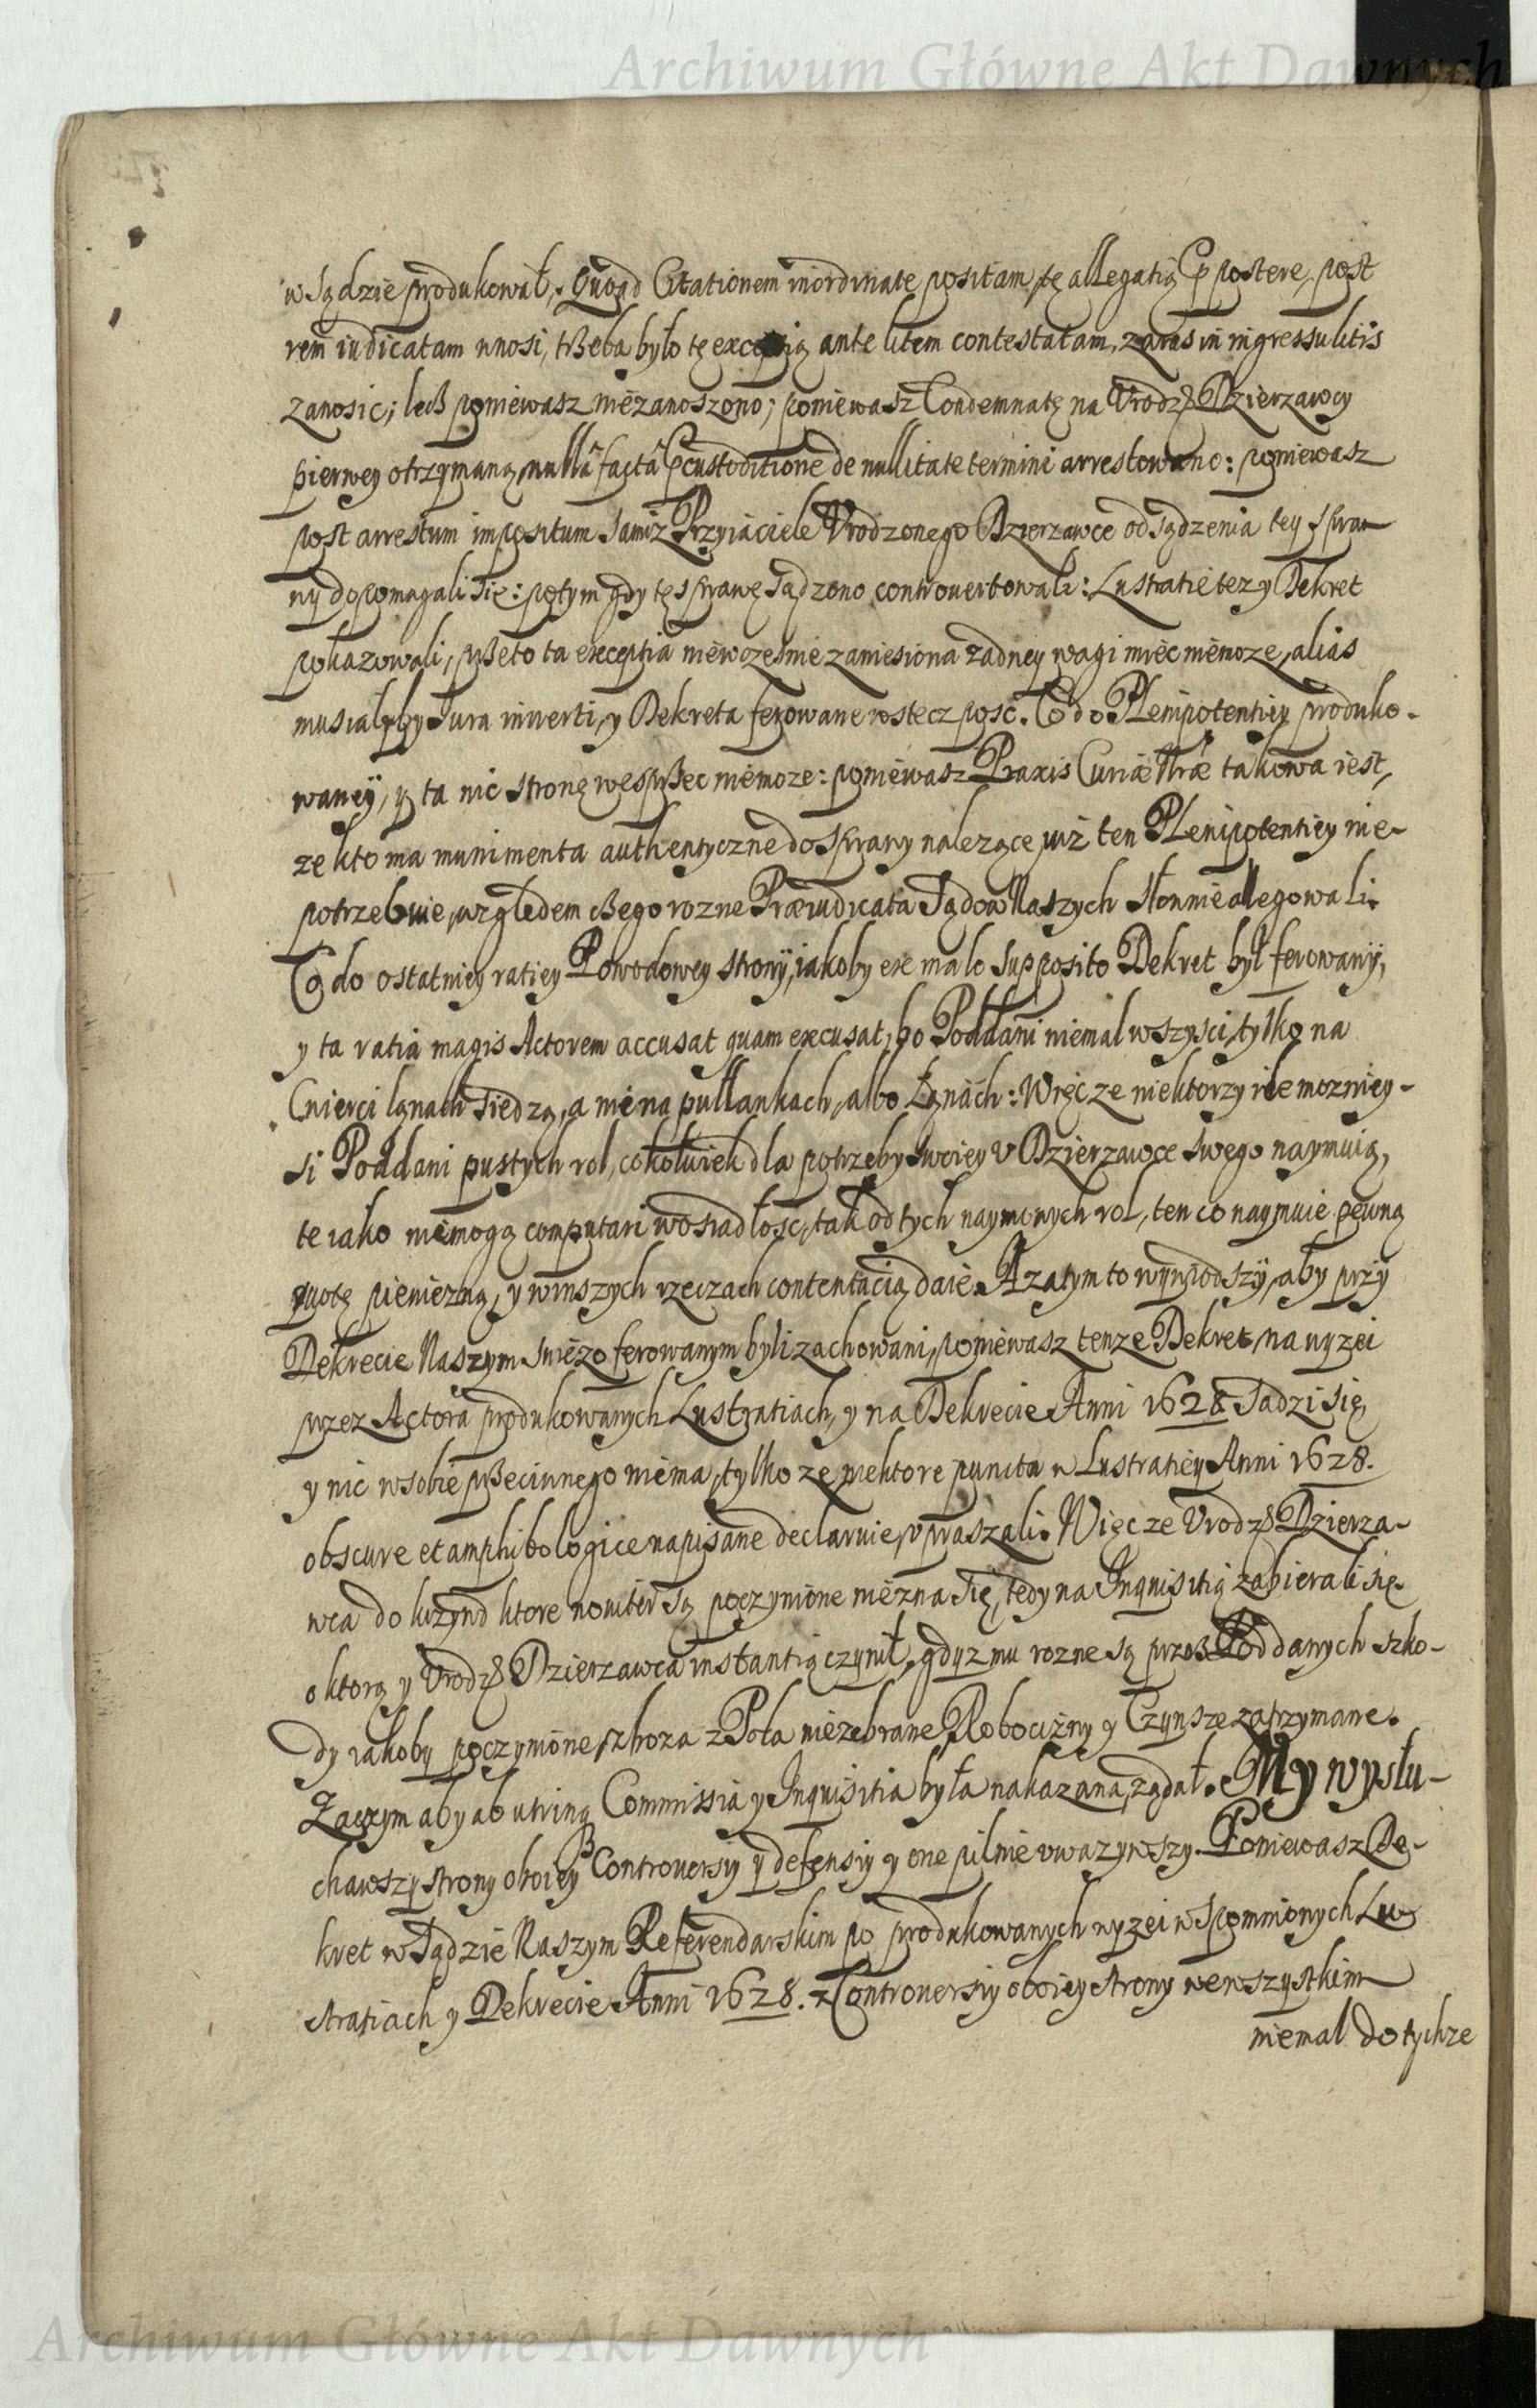 Archiwum Główne Akt Dawnych
w Sądzie produkował, Quoad Citationem inordinate positam, tę allegatią postere, post
rem iudicatam wnosi, trzeba było tę excepcią ante litem contestatam, zaras in ingressu litis
zanosic; lecz poniewasz niezanoszono; poniewasz Condemnatę na Vrodz. Dzierzawcy
pierwey otrzymaną, nullâ factâ custoditione de nullitate termini arrestowano: poniewasz
post arrestum impositum samiz Przyiaciele Vrodzonego Dzierzawce od sądzenia tey spra-
wy dopomagali się: potym gdy tę sprawę sądzono controuertowali: Lustratie tez y Dekret
pokazowali, przeto ta exceptia niewczesnie zaniesiona zadney wagi miec niemoze, alias
musialyby Jura inuerti, y Dekreta ferowane wstecz posc. Co do Plenipotentiey produko-
waney, y ta nic stronę wesprzec niemoze: poniewasz Praxis Curiæ Nræ takowa iest,
ze kto ma munimenta authentyczne do sprawy nalezące, iuz ten Plenipotentiey nie-
potrzebuie, względem czego rozne Præiudicata Sądow Naszych słownie allegowali.
Co do ostatniey ratiey Powodowey strony, iakoby ex malo supposito Dekret był ferowany,
y ta ratia magis Actorem accusat quam excusat, bo Poddani niemal wszysci, tylko na
Cwierci łanach siedzą, a nie na pułłankach, albo Łanach: Więc ze niektorzy ile mozniey-
si Poddani pustych rol, cokolwiek dla potrzeby swoiey v Dzierzawce swego naymuią,
te iako niemogą computari w osiadłosc, tak od tych naymowych rol, ten co naymuie pewną
quotę pieniezną, y w inszych rzeczach contentacią daie. A zatym to wywiodszy, aby przy
Dekrecie Naszym swiezo ferowanym byli zachowani, poniewasz tenze Dekret, na wyzei
przez Actora produkowanych Lustratiach, y na Dekrecie Anni 1628 sadzi się,
y nic w sobie przeciwnego niema, tylko ze niektore puncta w Lustratiey Anni 1628.
obscure et amphibologice napisane declaruie, vpraszali. Więc ze Vrodz. Dzierza-
wca do krzywd ktore nowiter są poczynione niezna się, tedy na Inquisitią zabierali się
o ktorą y Vrodz. Dzierzawca instantią czynił, gdyz mu rozne są przez Poddanych szko-
dy iakoby poczynione, zboza z Pola niezebrane, Robocizny y Czynsze zatrzymane.
Zaczym aby ab utrinq Commissia y Inquisitia była nakazana, ządał. My wysłu-
chawszy strony oboiey Controuersiy y defensiy y one pilnie vwazywszy. Poniewasz De-
kret w Sądzie Naszym Referendarskim po produkowanych wyzei wspomnionych Lu-
stratiach y Dekrecie Anni 1628. z Controuersiy oboiey strony we wszystkim
niemal do tychze
Archiwum Główne Akt Dawnych